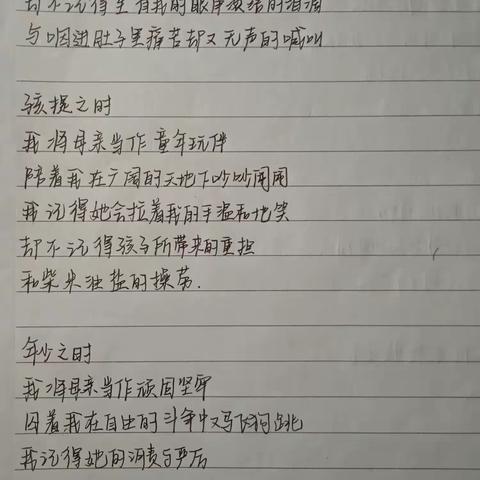 却不记得
与咽进肚子里痛苦却又无声的喊叫
孩提之时
我将母亲当作童年玩伴
陪着我在广阔的天地下吵吵闹闹
我记得她会拉着我的手温和地笑
却不记得孩子所带来的重担
和柴米油盐的操劳.
年少之时
我将母亲当作顽固坚牢
困着我在自由的斗争中又马飞狗跳
我记得她的谴责与严厉